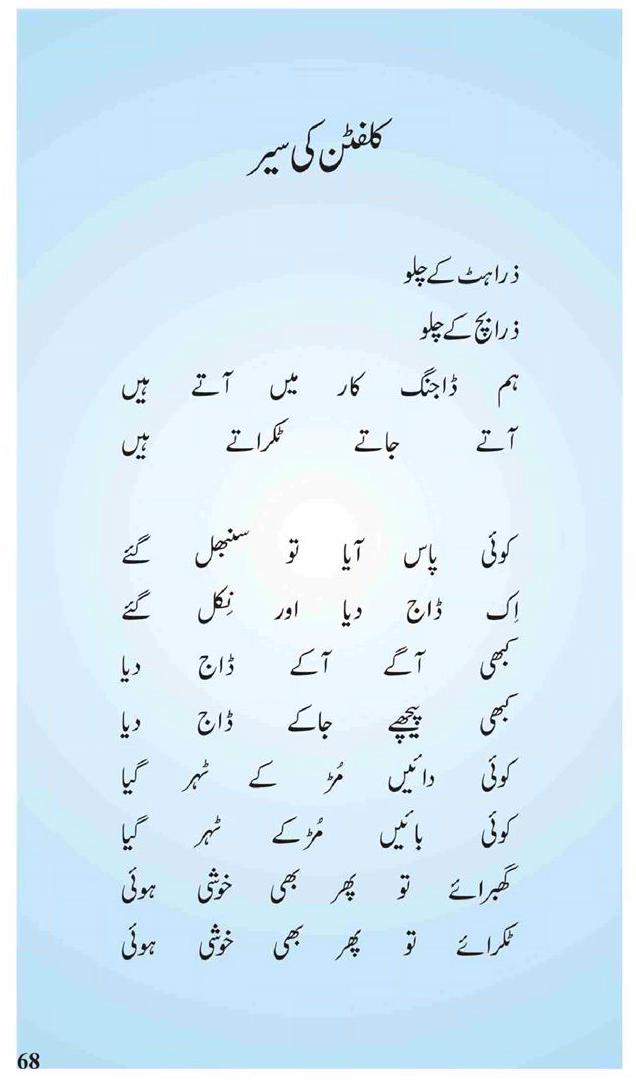 کلفٹن کی سیر
ذرا ہٹ کے چلو
ذرا بچ کے چلو
ہم ڈاجنگ کار میں آتے ہیں
آتے جاتے ٹکراتے ہیں
کوئی پاس آیا تو سنبھل گئے
اِک ڈاج دیا اور نِکل گئے
کبھی آگے آکے ڈاج دیا
کبھی پیچھے جاکے ڈاج دیا
کوئی دائیں مُڑ کے ٹہر گیا
کوئی بائیں مُڑ کے ٹہر گیا
گھبرائے تو پھر بھی خوشی ہوئی
ٹکرائے تو پھر بھی خوشی ہوئی
68